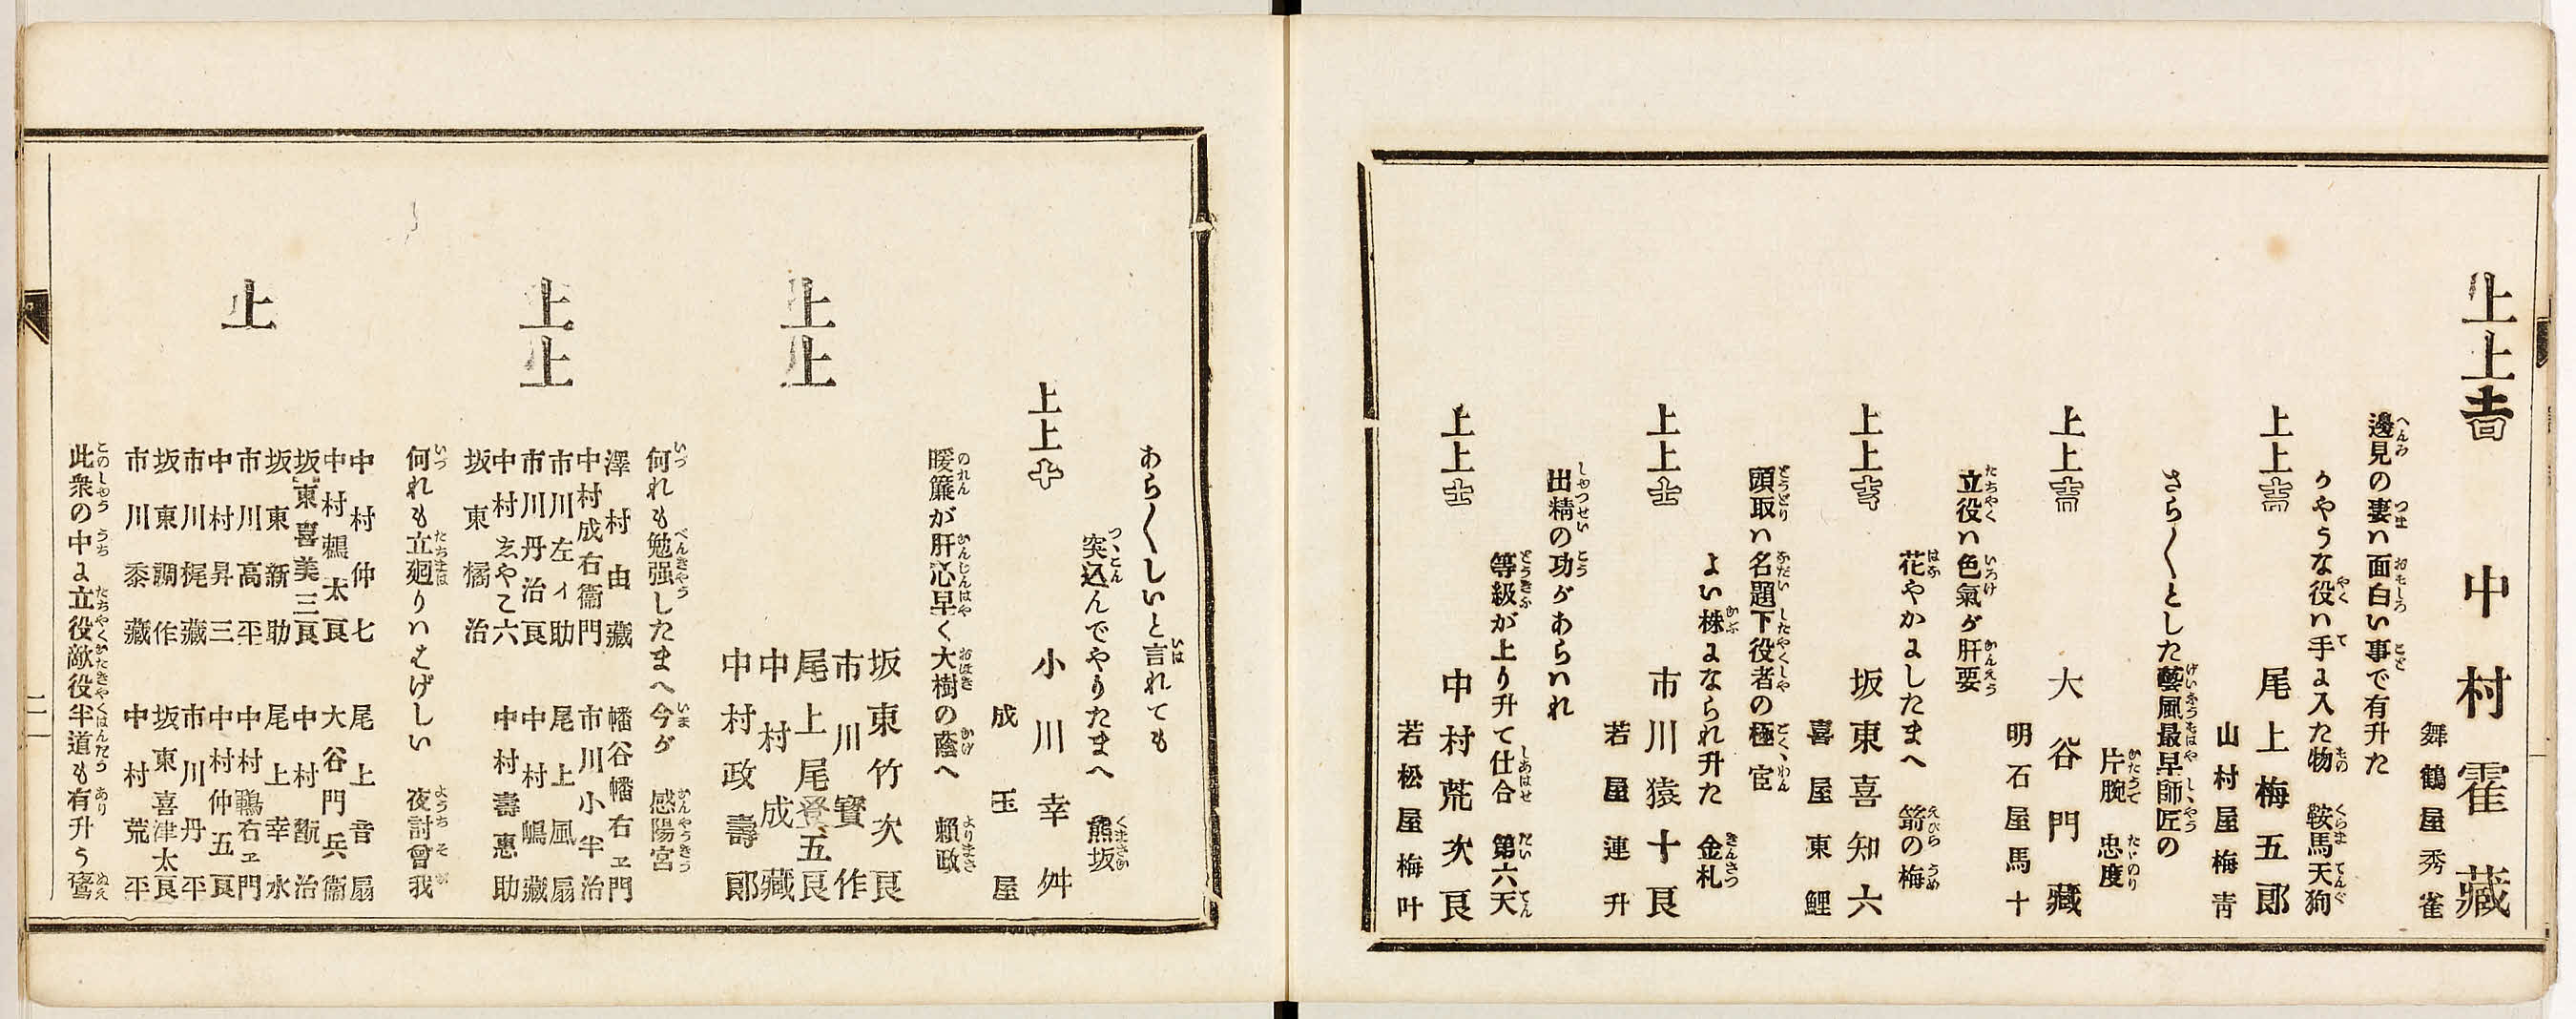 上上吉 中村霍藏
舞鶴屋秀雀
邊見の妻ハ面白い事で有升た
りやうな役ハ手よ入た物 鞍馬天狗
上上吉 尾上梅五郎
山村屋梅青
さら〱とした藝風最早師匠の
片腕 忠度
上上吉 大谷門藏
明石屋馬十
立役ハ色氣が肝要
花やかよしたまへ 箙の梅
上上吉 坂東喜知六
喜屋東鯉
頭取ハ名題下役者の極官
よい株よなられ升た 金札
上上士 市川猿十良
若屋連升
出精の功があらハれ
等級が上り升て仕合 第六天
上上士 中村荒次良
若松屋梅叶
あら〱しいと言れても
突込んでやりたまへ 熊坂
上上十 小川幸舛
成玉屋
暖簾が肝心早く大樹の蔭へ 頼政
坂東竹次良
市川寳作
上上 尾上尾登五良
中村成藏
中村政壽郎
何れも勉强したまへ今が 感陽宮
澤村由藏 幡谷幡右ヱ門
中村成右衞門 市川小半治
市川左ィ助 尾上風扇
上上 市川丹治良 中村嶋藏
中村ゑやこ六 中村壽惠助
坂東橘治
何れも立廻りハはげしい 夜討曾我
中村仲七 尾上音扇
中村鶴太良 大谷門兵衞
坂東喜美三良 中村甑治
坂東新助 尾上幸水
上 市川高平 中村鶴右ヱ門
中村昇三 中村仲五良
市川梶藏 市川丹平
坂東調作 坂東喜津太良
市川黍藏 中村荒平
此衆の中よ立役敵役半道も有升う 鵺
二